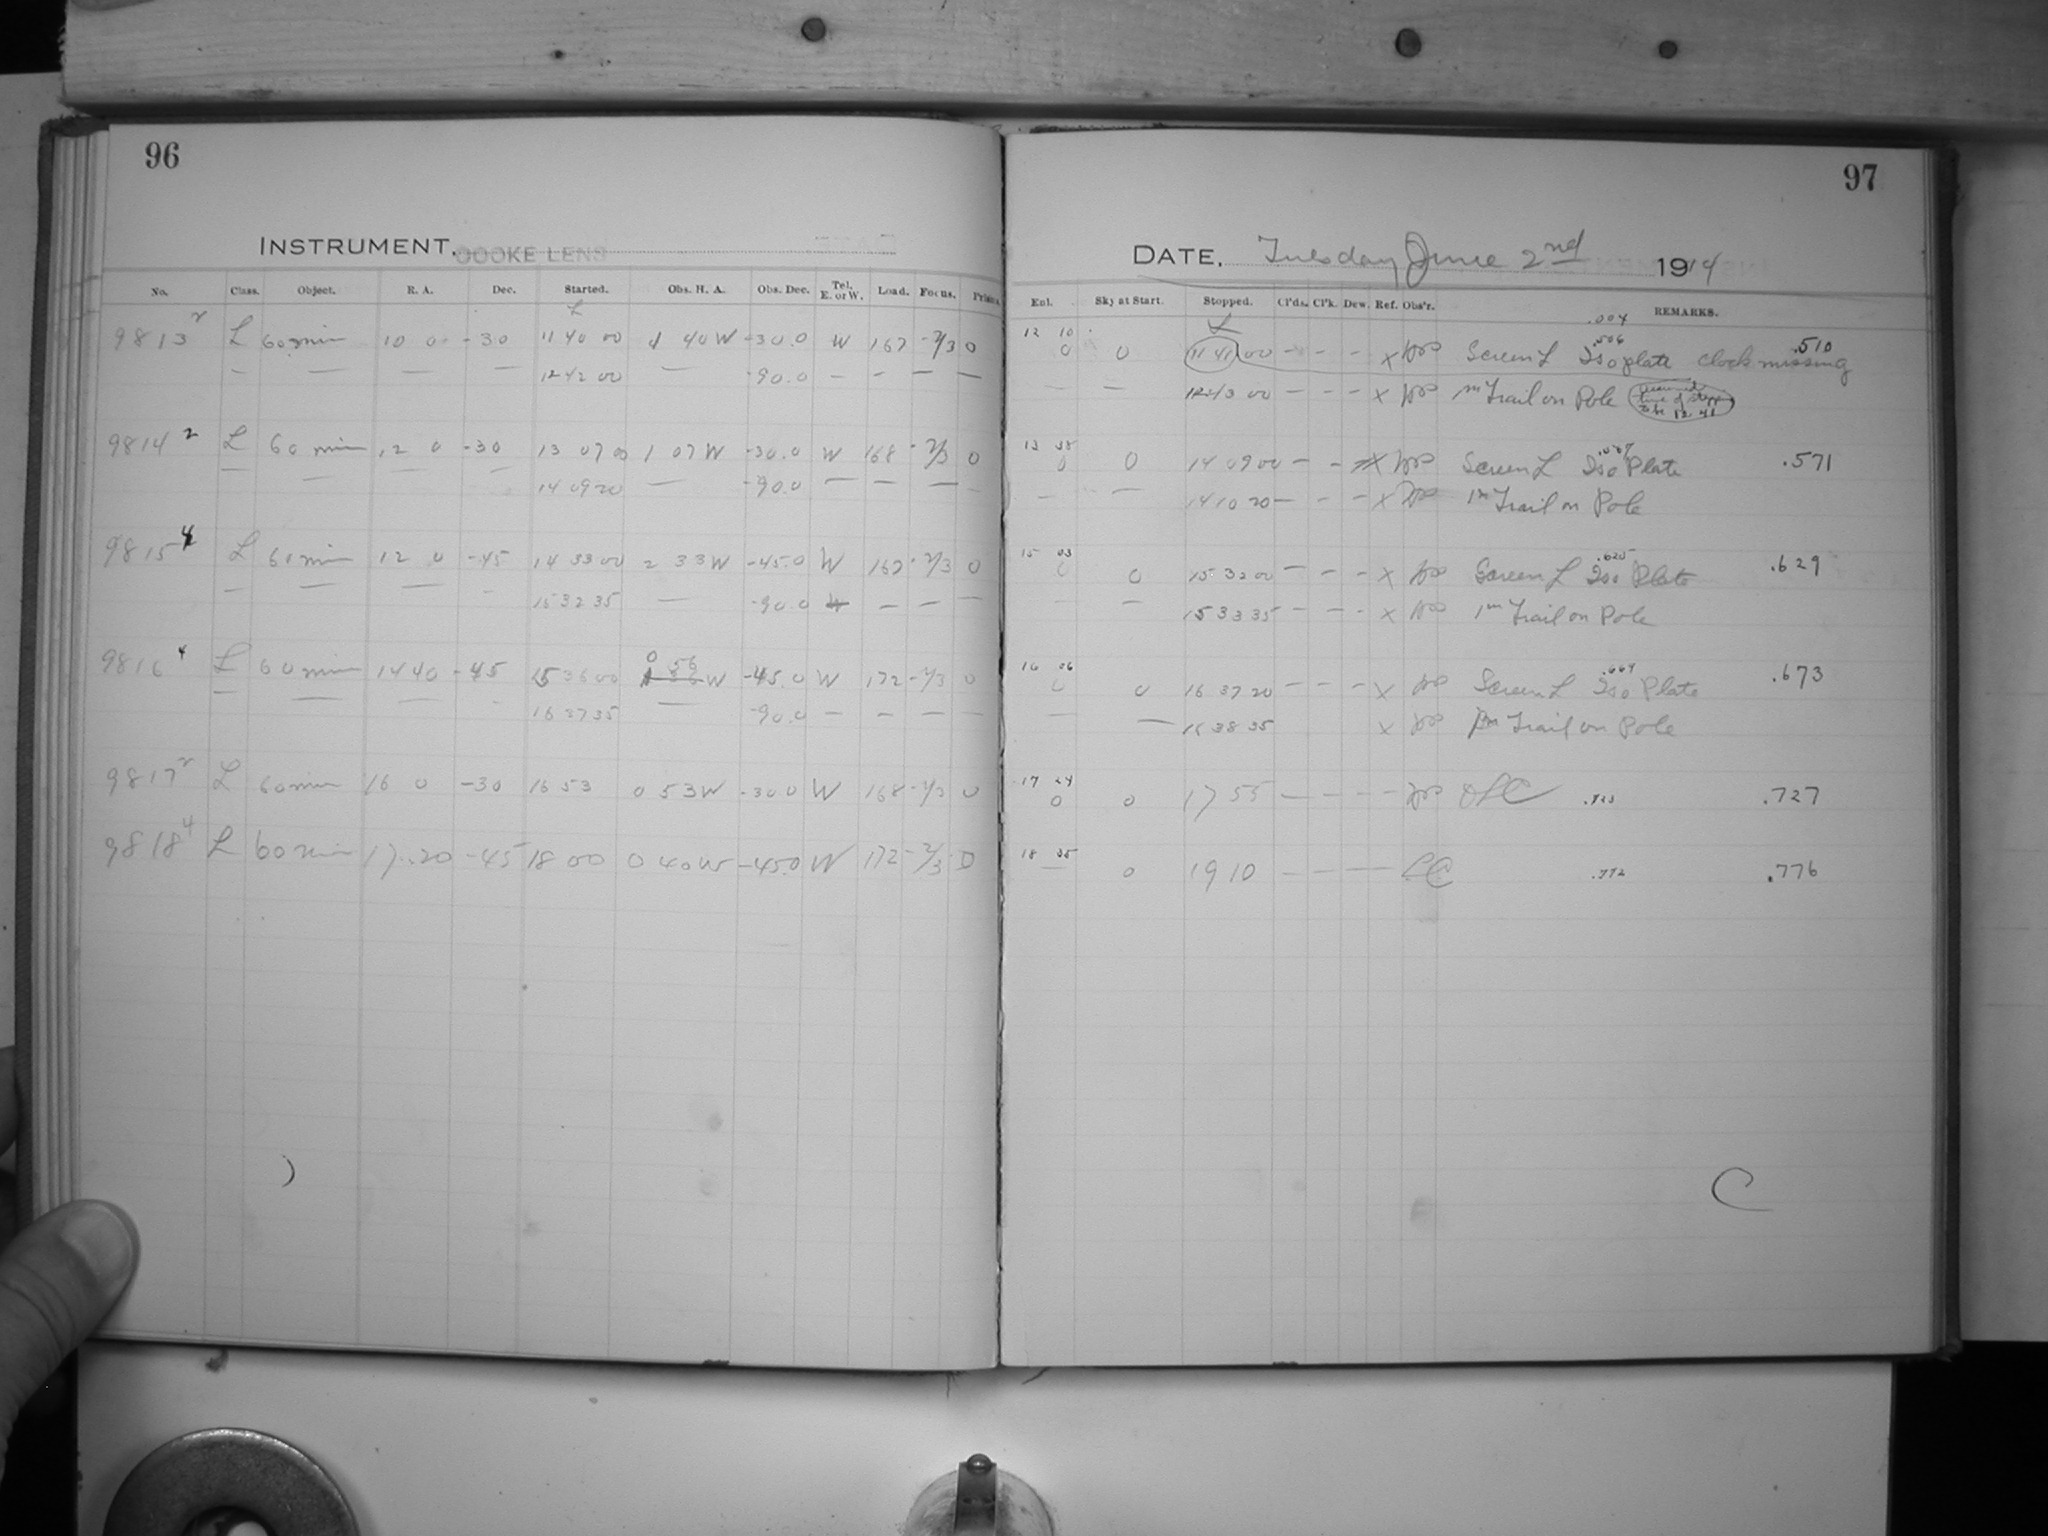 96
INSTRUMENT. COOKE LENS
No. Class. Object. R. A. Dec. Started. Obs. H. A. Obs. Dec. Tel. E. or W. Load. Focus. Prism.
9813 2 L 60 min 10 0 -30 11 40 00 1 40 W -30.0 W 167 -2/3 0
— — — — 12 42 00 — -90.0 — — — —
9814 2 L 60 min 12 0 -30 13 07 00 1 07 W -30.0 W 168 -2/3 0
— — — — 14 09 20 — -90.0 — — — —
9815 4 L 60 min 12 0 -45 14 33 00 2 33 W -45.0 W 167 -2/3 0
— — — - 15 32 35 — -90.0 — — —
9816 4 L 60 min 14 40 -45 15 36 00 0 56 W -45.0 W 172 -2/3 0
— — — - 16 37 35 — -90.0 — — — —
9817 2 L 60 min 16 0 -30 16 53 0 53 W -30.0 W 168 -2/3 0
9818 4 L 60 min 17 20 -45 18 00 0 40 W -45.0 W 172 -2/3 0
97
DATE, Tuesday June 2nd 1914
Ent. Sky at Start. Stopped. Cl'ds. Cl'k. Dew. Ref. Obs'r. REMARKS.
12 10 .004
0 0 11 41 00 — - - x Screen L Iso plate clock missing .506 .510
— — 12 43 00 — - - x 1m Trail on Pole assumed time of stop to be 12 41
13 38
0 0 14 09 00 — - x Screen L Iso Plate .571
— — 14 10 20 — - - x 1m Trail on Pole
15 03 .625
0 0 15 32 00 — - - x Screen L Iso Plate .629
— 15 33 35 — — - x 1m Trail on Pole
16 06 .669
0 0 16 37 20 — - - x Screen L Iso Plate .673
— — 16 38 35 x 1m Trail on Pole
17 24
0 0 17 55 — — — - LC .723 .727
18 35
— 0 19 10 — — — LC .772 .776